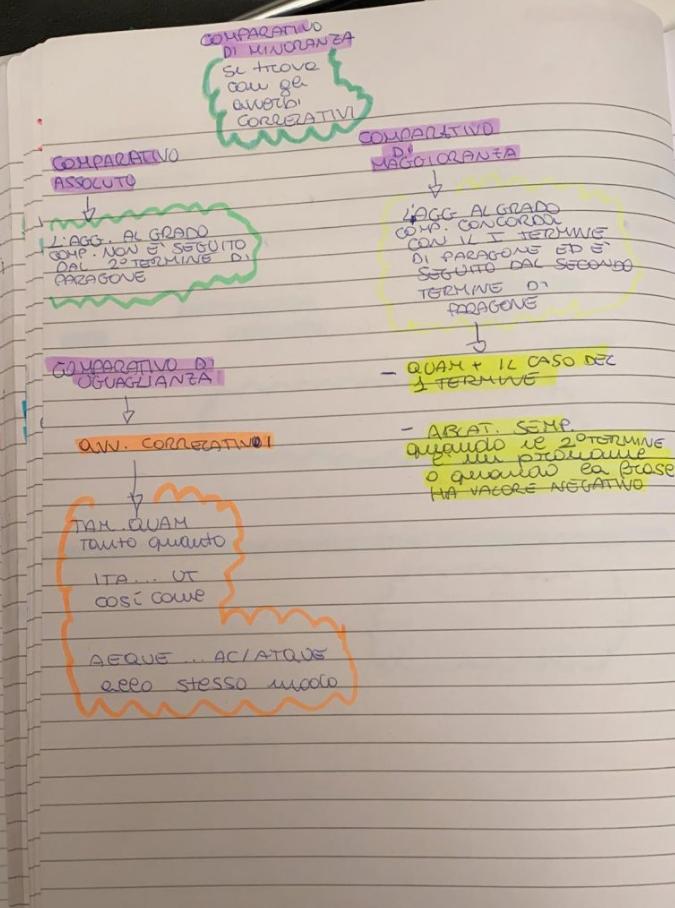 COMPARATIVO
DI MINORANZA
si trova
con gli
avverbi
CORRELATIVI
COMPARATIVO
ASSOLUTO
L'AGG. AL GRADO
COMP. NON È SEGUITO
DAL 2° TERMINE DI
PARAGONE
COMPARATIVO
DI
MAGGIORANZA
L'AGG AL GRADO
COMP. CONCORDA
CON IL I TERMINE
DI PARAGONE ED È
SEGUITO DAL SECONDO
TERMINE DI
PARAGONE
- QUAM + IL CASO DEL
1 TERMINE
- ABLAT. SEMP.
quando il 2° TERMINE
è un pronome
o quando la frase
HA VALORE NEGATIVO
COMPARATIVO DI
UGUAGLIANZA
avv. CORRELATIVI
TAM. QUAM
tanto quanto
ITA... UT
così come
AEQUE ... AC/ATQUE
allo stesso modo